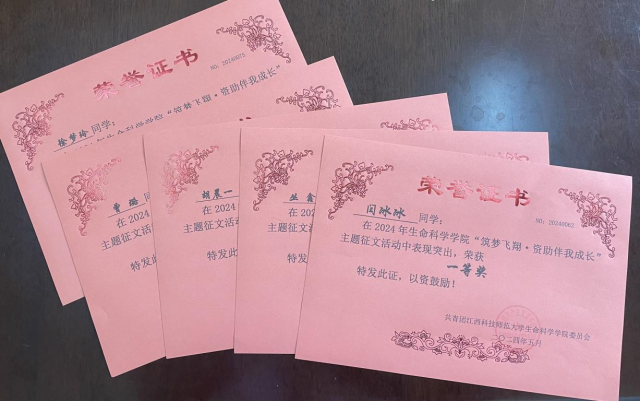 荣誉证书
NO. 20240602
闫冰冰 同学：
在 2024 年生命科学学院“筑梦飞翔·资助伴我成长”
主题征文活动中表现突出，荣获
一等奖
特发此证，以资鼓励！
共青团江西科技师范大学生命科学学院委员会
二〇二四年五月
荣誉证书
徐梦玲 同学：
“筑梦飞翔·资助伴我成长”
曹璐 同
在 2024
主题征文活
特发此
胡晨一
在 2024
主题征文活
特发此
在 2024
主题征文活
特发此